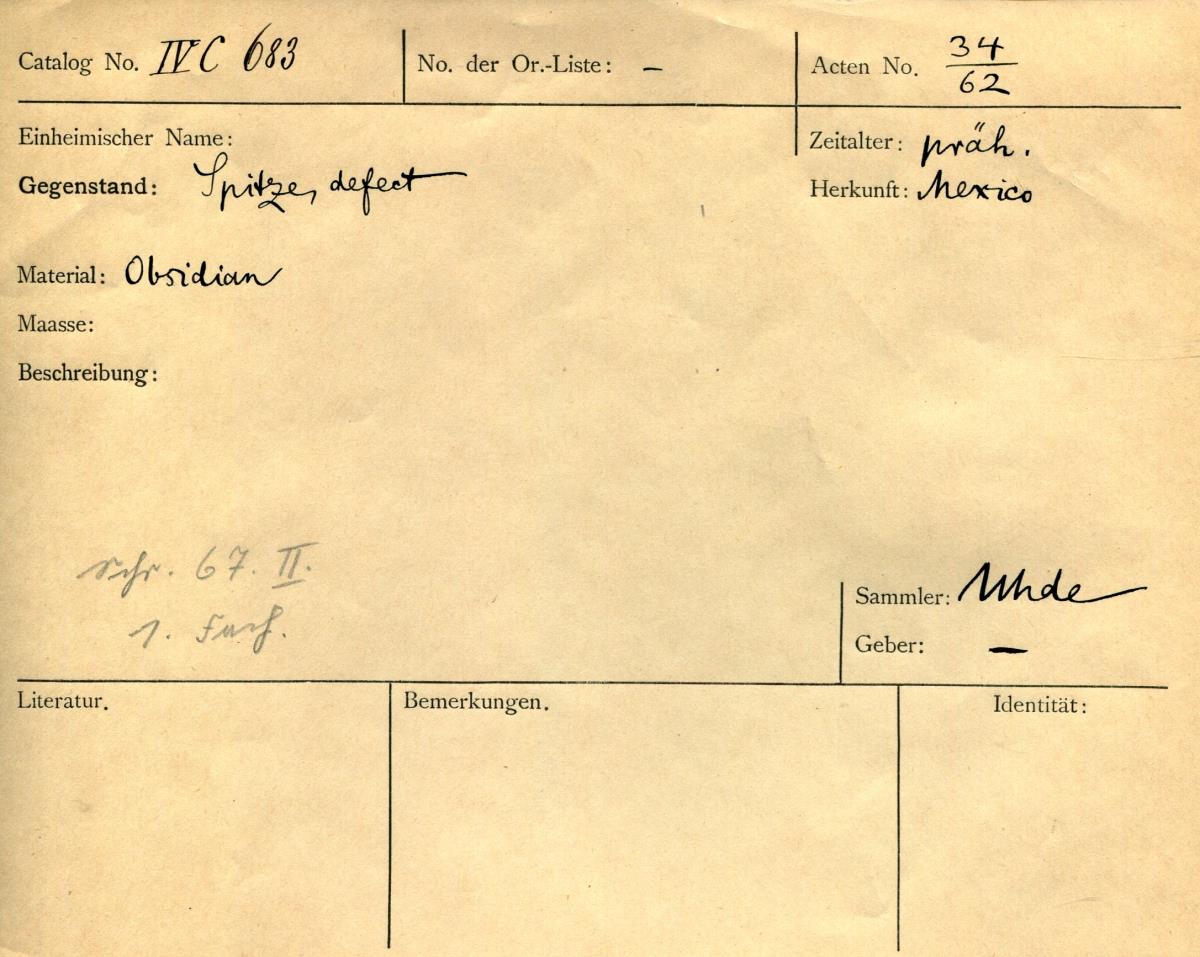 Catalog No. IV C 683
No. der Or.-Liste: –
Acten No. 34/62
Einheimischer Name:
Zeitalter: präh.
Gegenstand: Spitze, defect
Herkunft: Mexico
Material: Obsidian
Maasse:
Beschreibung:
Schr. 67. II.
1. Fach.
Sammler: Uhde
Geber: –
Literatur.
Bemerkungen.
Identität: